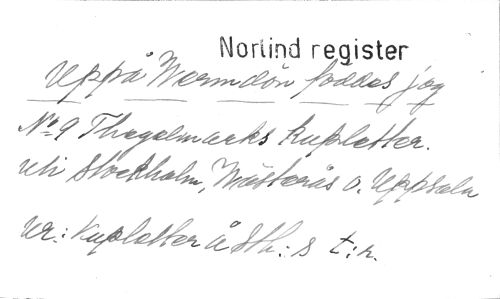 Norlind register
Uppå Wermdön föddes jag
No 9 Thegelmarks kupletter.
uti Stockholm, Westerås o. Uppsala
ur: Kupletter å Sth:s t:r.